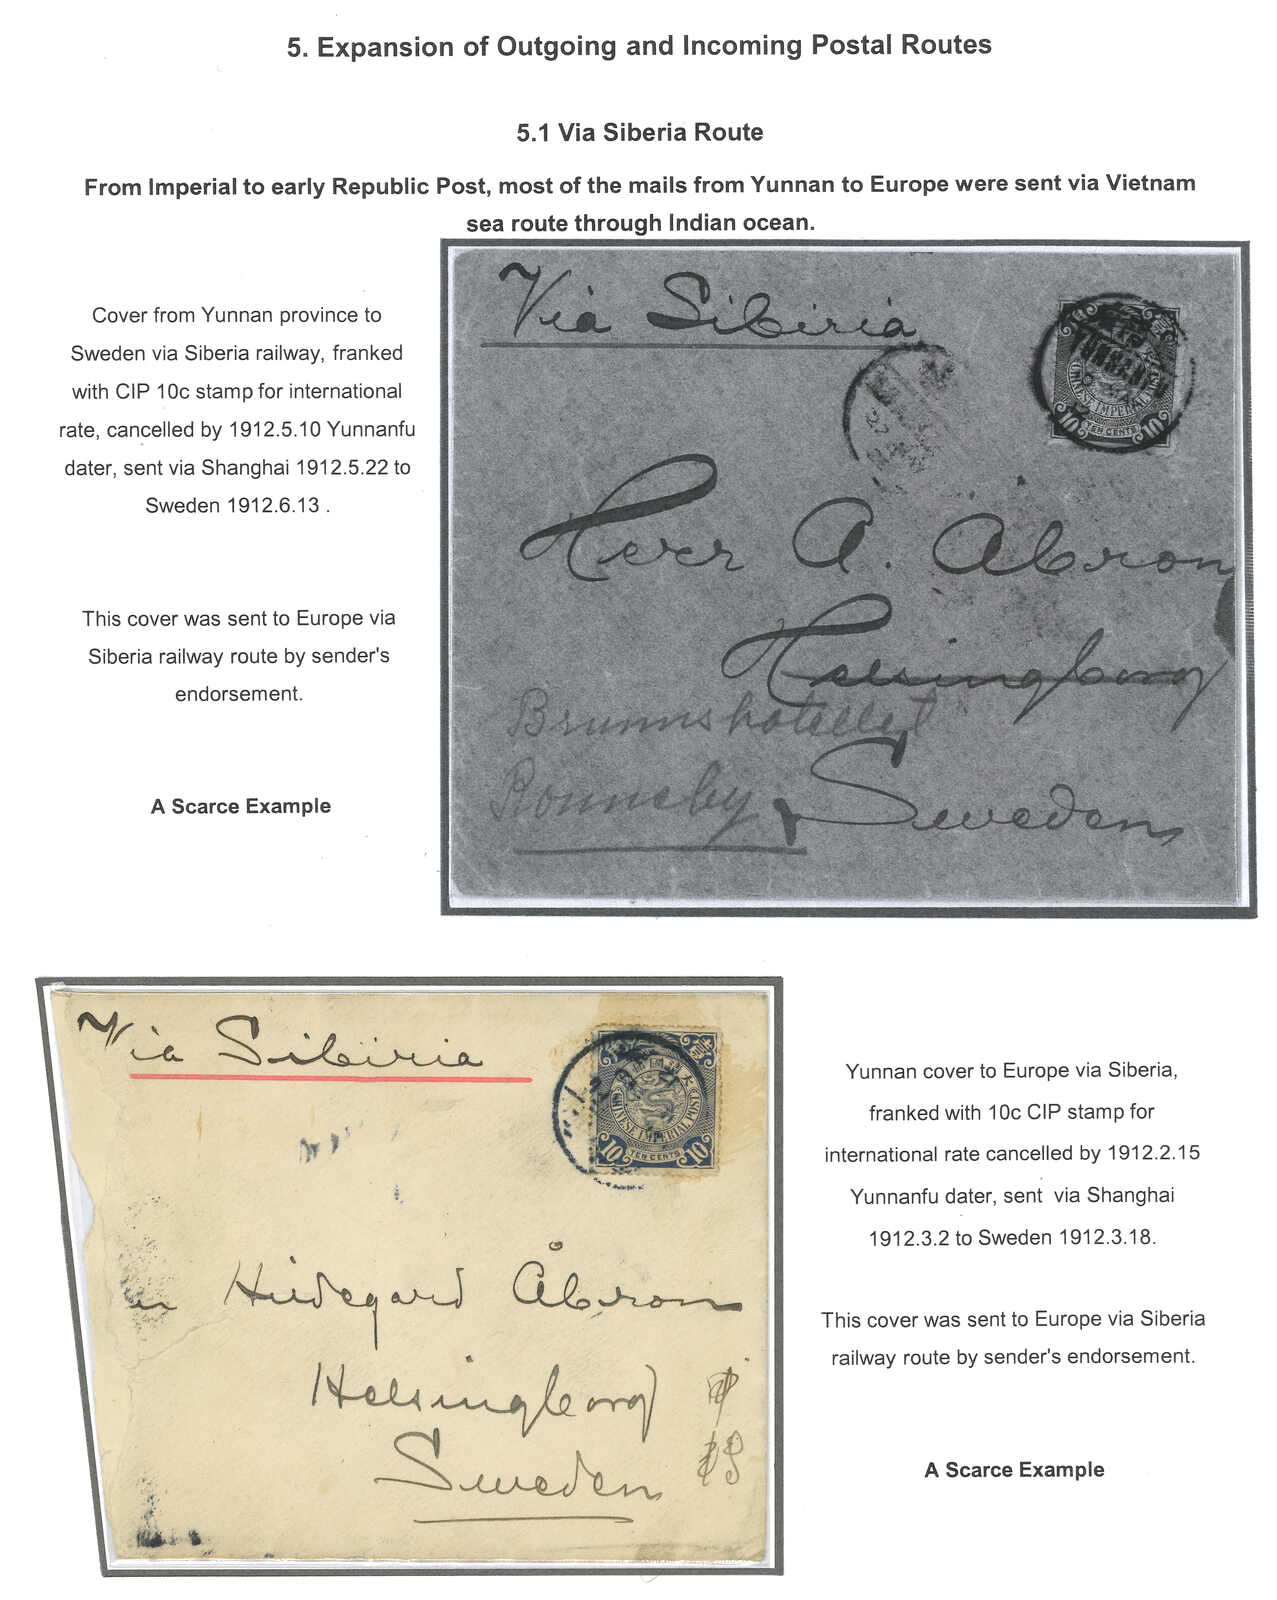 5. Expansion of Outgoing and Incoming Postal Routes
5.1 Via Siberia Route
From Imperial to early Republic Post, most of the mails from Yunnan to Europe were sent via Vietnam
sea route through Indian ocean.
Cover from Yunnan province to
Sweden via Siberia railway, franked
with CIP 10c stamp for international
rate, cancelled by 1912.5.10 Yunnanfu
dater, sent via Shanghai 1912.5.22 to
Sweden 1912.6.13 .
This cover was sent to Europe via
Siberia railway route by sender's
endorsement.
A Scarce Example
Via Sibiria
CHINESE IMPERIAL POST
10 TEN CENTS 10
Herr A. Abron
Helsingborg
Brunnshotellet
Ronneby
Sweden
Via Sibiria
CHINESE IMPERIAL POST
10 TEN CENTS 10
Hildegard Åbron
Helsingborg
Sweden
Yunnan cover to Europe via Siberia,
franked with 10c CIP stamp for
international rate cancelled by 1912.2.15
Yunnanfu dater, sent via Shanghai
1912.3.2 to Sweden 1912.3.18.
This cover was sent to Europe via Siberia
railway route by sender's endorsement.
A Scarce Example